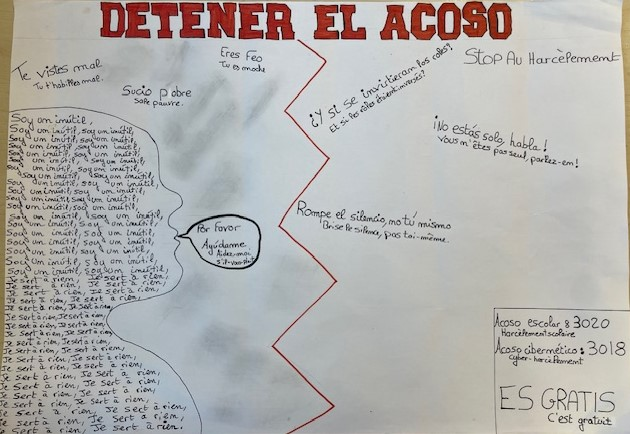 DETENER EL ACOSO
Te vistes mal
Tu t'habilles mal.
Sucio pobre
Sale pauvre.
Eres Feo
Tu es moche
Soy un inútil,
Soy un inútil, soy un inútil,
Soy un inútil, soy un inútil,
Soy un inútil, soy un inútil,
Soy un inútil, soy un inútil,
un inútil, soy un inútil,
un inútil, soy un inútil,
soy un inútil, soy un inútil,
Soy un inútil, soy un inútil,
Soy un inútil, soy un inútil,
Soy un inútil, soy un inútil,
Soy un inútil, soy un inútil,
Soy un inútil, soy un inútil,
Soy un inútil, soy un inútil,
Soy un inútil, soy un inútil,
Soy un inútil, soy un inútil,
Soy un inútil, soy un inútil,
Soy un inútil, soy un inútil,
Je sert à rien, Je sert à rien,
Je sert à rien, Je sert à rien,
Je sert à rien, Je sert à rien,
Je sert à rien, Je sert à rien,
Je sert à rien, Je sert à rien,
Je sert à rien, Je sert à rien,
Je sert à rien, Je sert à rien,
Je sert à rien, Je sert à rien,
Je sert à rien, Je sert à rien,
Je sert à rien, Je sert à rien,
Je sert à rien, Je sert à rien,
Je sert à rien, Je sert à rien,
Je sert à rien, Je sert à rien,
Por favor
Ayúdame
Aidez-moi
s'il-vous-plaît
¿Y si se invirtieran los roles?
Et si les rôles étaient inversés?
Stop Au Harcèlement
¡No estás solo, habla!
Vous n'êtes pas seul, parlez-en!
Rompe el silencio, no tú mismo
Brise le silence, pas toi-même.
Acoso escolar : 3020
Harcèlement scolaire
Acoso cibernético : 3018
Cyber-harcèlement
ES GRATIS
C'est gratuit